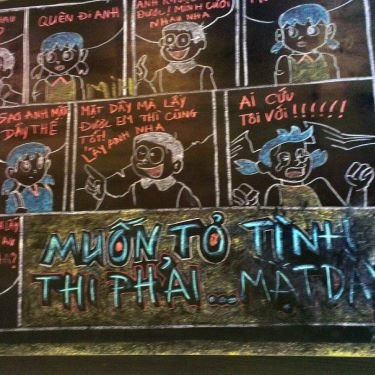 QUÊN ĐI ANH
ANH
ĐƯỢC MÌNH CƯỚI
NHAU NHA
SAO ANH MẶT
DÀY THẾ
MẶT DÀY MÀ LẤY
ĐƯỢC EM THÌ CŨNG
TỐT!
LẤY ANH NHA
AI CỨU
TÔI VỚI !!!!!!
MUỐN TỎ TÌNH
THÌ PHẢI ... MẶT DÀY